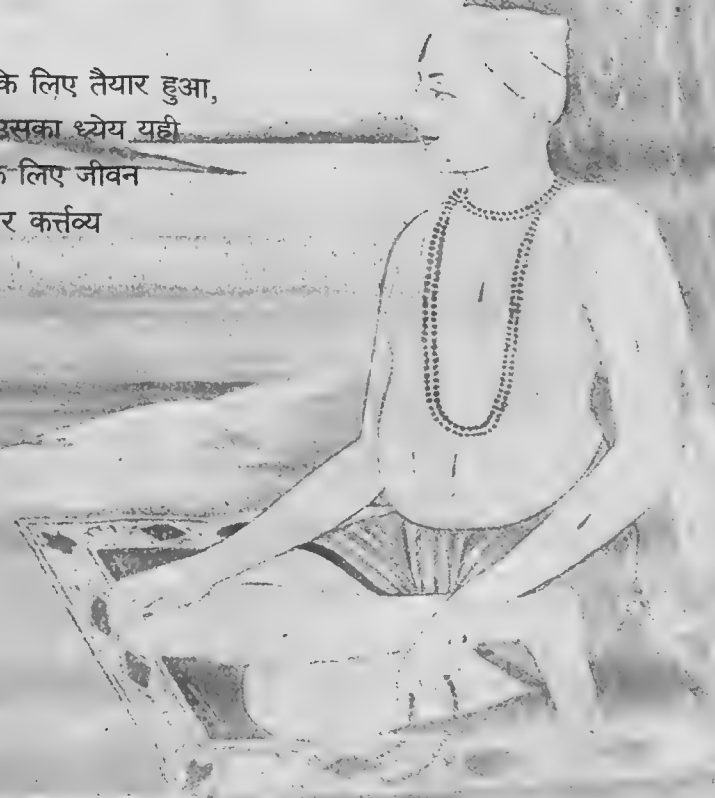 के लिए तैयार हुआ,
उसका ध्येय यही
के लिए जीवन
र कर्त्तव्य